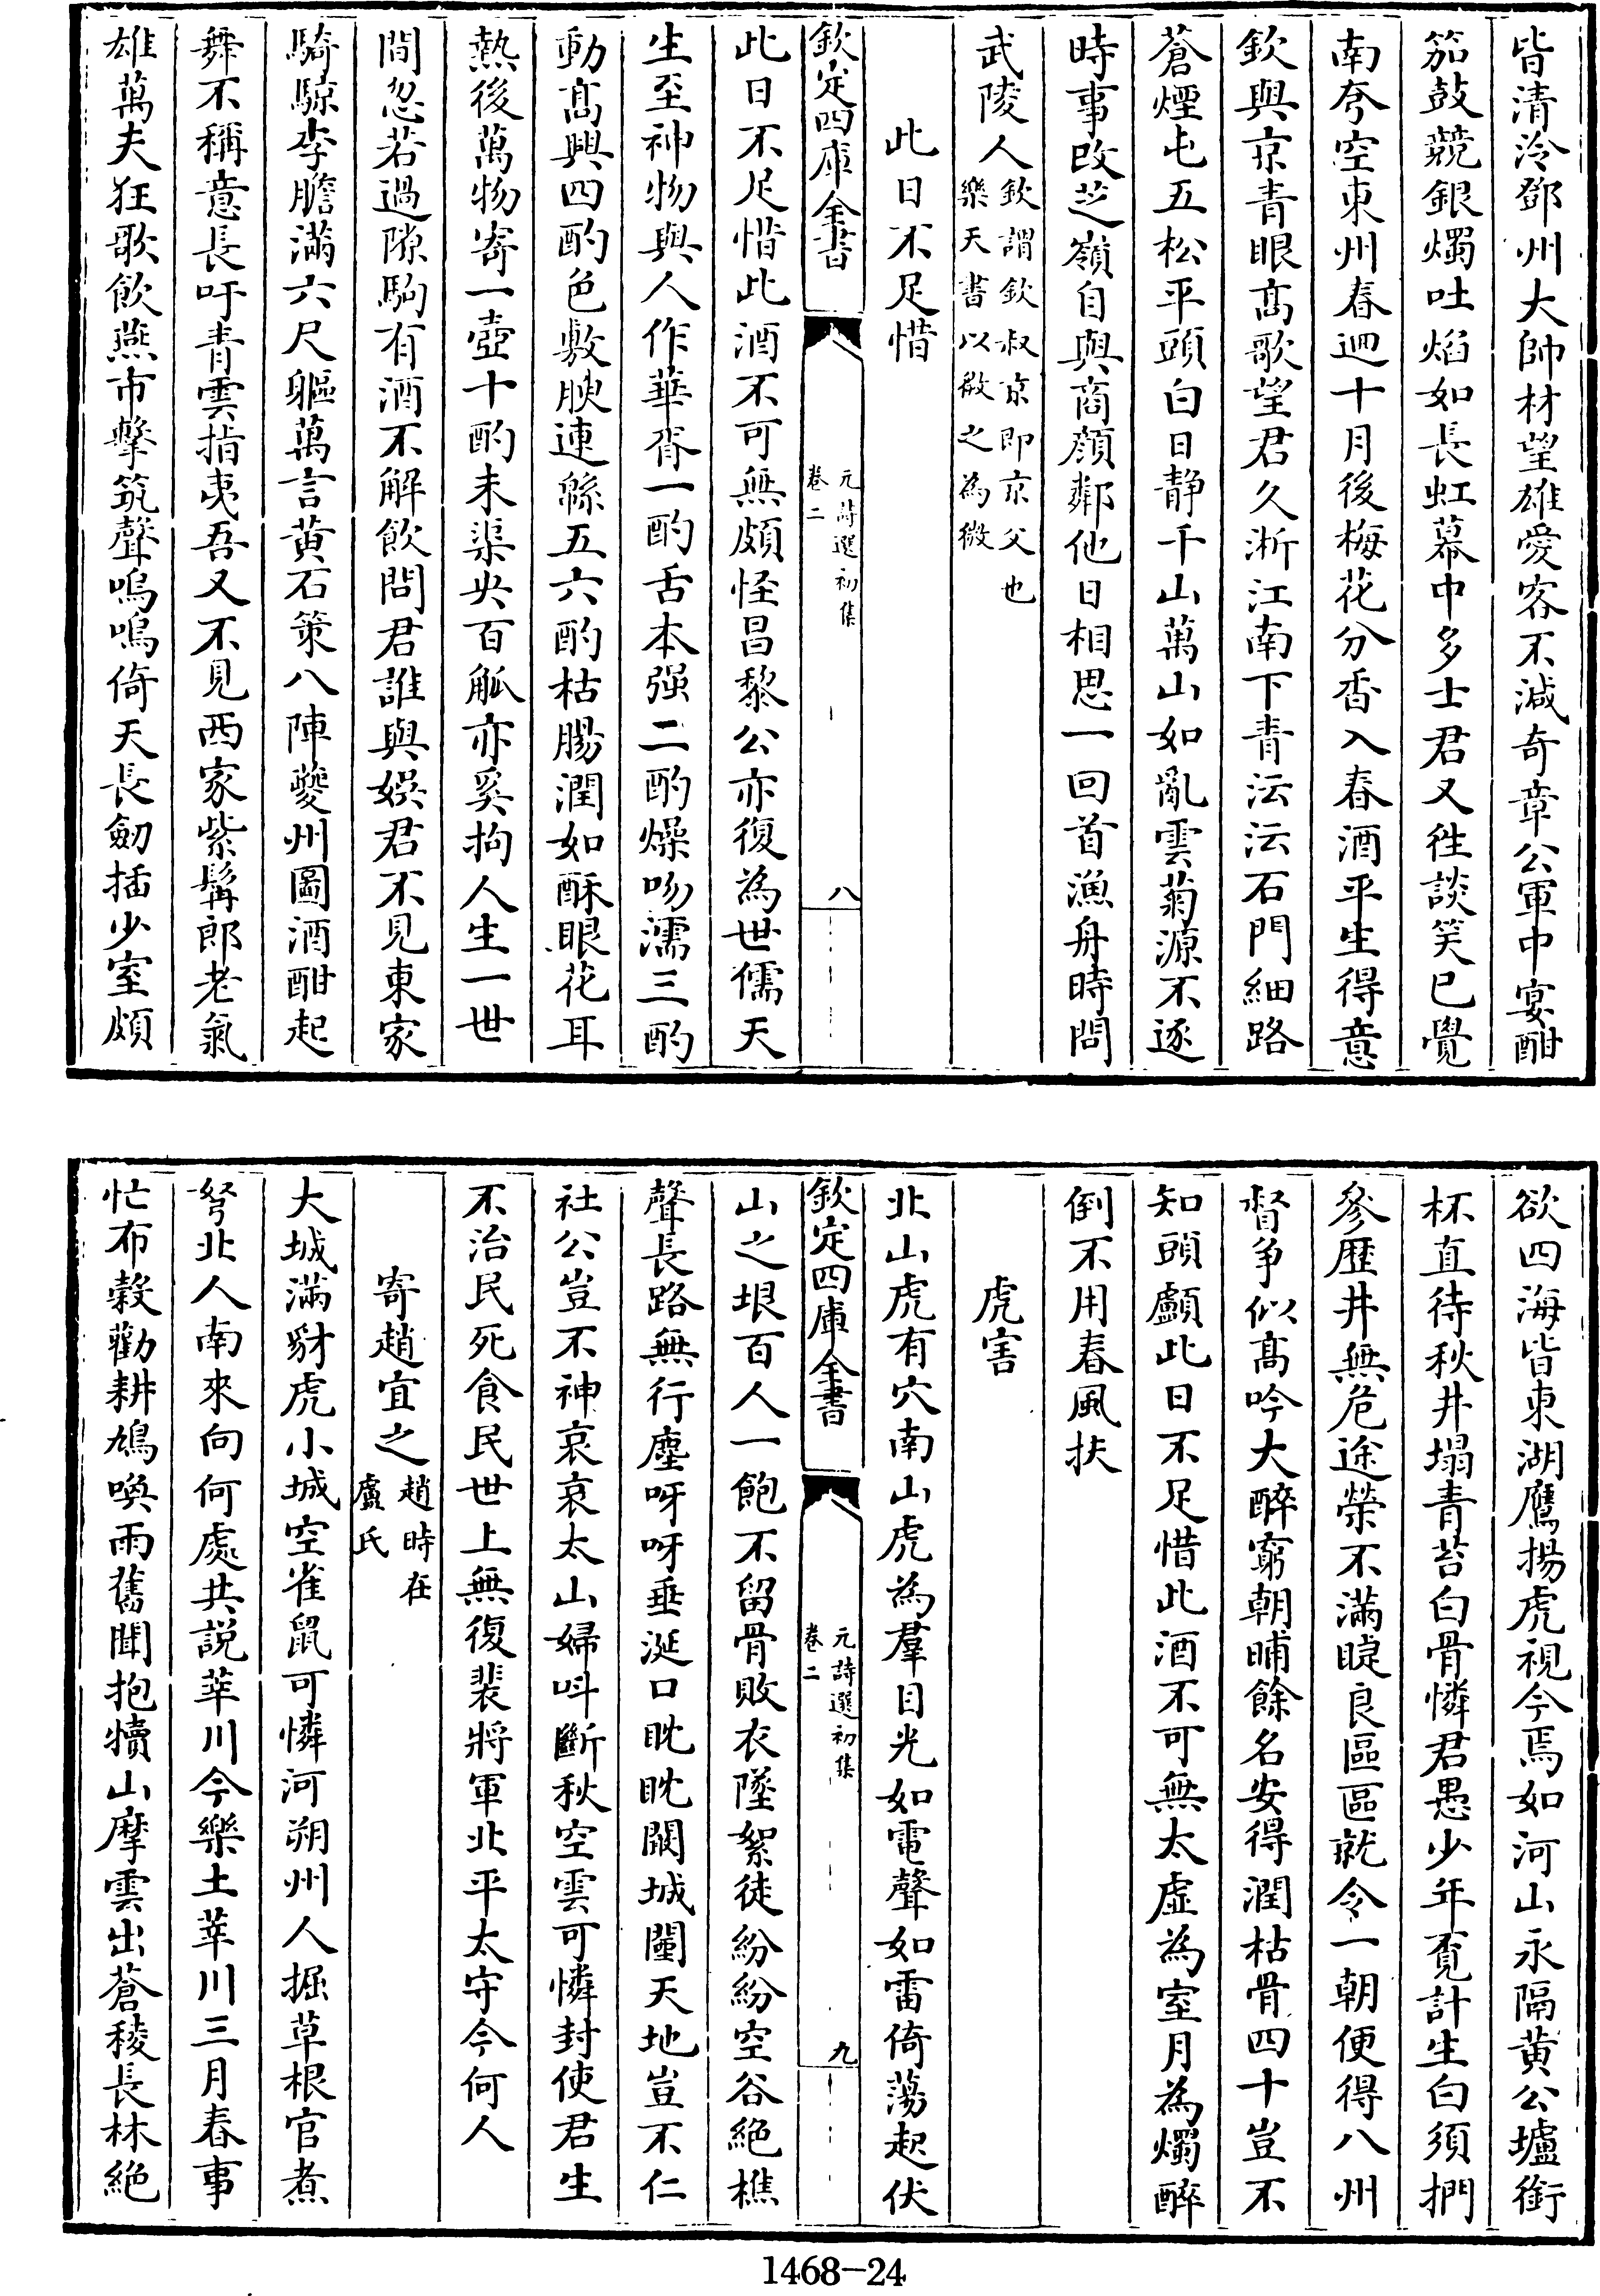 皆清泠鄧州大帥材望雄愛客不減奇章公軍中宴酣
笳鼓競銀燭吐焰如長虹幕中多士君又徃談笑已覺
南夸空東州春迴十月後梅花分香入春酒平生得意
欽與京青眼高歌望君久淅江南下青沄沄石門細路
蒼煙屯五松平頭白日静千山萬山如亂雲菊源不逐
時事改芝嶺自與商顔鄰他日相思一回首漁舟時問
武陵人欽謂欽叔京即京父也
樂天書以敵之為微
此日不足惜
欽定四庫全書
元詩選初集
卷二
八
此日不足惜此酒不可無頗怪昌黎公亦復為世儒天
生至神物與人作華胥一酌舌本强二酌燥吻濡三酌
動髙興四酌色敷腴連緜五六酌枯腸潤如酥眼花耳
熱後萬物寄一壺十酌未渠央百觚亦奚拘人生一世
間忽若過隙駒有酒不解飲問君誰與娱君不見東家
騎鯨李膽滿六尺軀萬言黄石策八陣夔州圖酒酣起
舞不稱意長吁青雲指夷吾又不見西家紫髯郎老氣
雄萬夫狂歌飲燕市擊筑聲嗚嗚倚天長劒插少室頗
欲四海皆東湖鷹揚虎視今焉如河山永隔黄公壚銜
杯直待秋井塌青苔白骨憐君愚少年覓計生白須捫
參歴井無危途榮不滿睫良區區就令一朝便得八州
督爭似髙吟大醉窮朝晡餘名安得潤枯骨四十豈不
知頭顱此日不足惜此酒不可無太虛為室月為燭醉
倒不用春風扶
虎害
北山虎有穴南山虎為羣目光如電聲如雷倚蕩起伏
欽定四庫全書
元詩選初集
卷二
九
山之垠百人一飽不留骨敗衣墜絮徒紛紛空谷絶樵
聲長路無行塵呀呀垂涎口眈眈闞城闉天地豈不仁
社公豈不神哀哀太山婦呌斷秋空雲可憐封使君生
不治民死食民世上無復裴將軍北平太守今何人
寄趙宜之趙時在
盧氏
大城滿豺虎小城空雀鼠可憐河朔州人掘草根官煮
弩北人南來向何處共説莘川今樂土莘川三月春事
忙布榖勸耕鳩喚雨舊聞抱犢山摩雲出蒼稜長林絶
1468-24